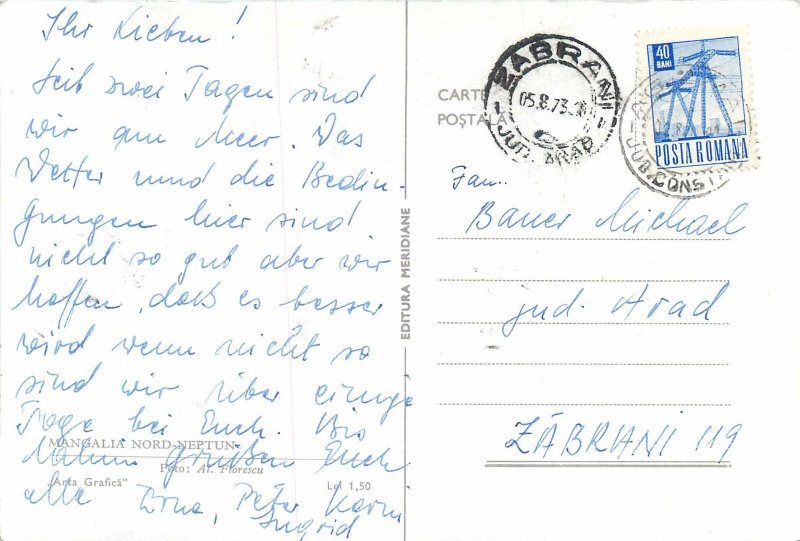 Ihr Lieben!
Seit zwei Tagen sind
wir am Meer. Das
Wetter und die Bedin-
gungen hier sind
nicht so gut aber wir
hoffen, daß es besser
wird wenn nicht so
sind wir über einige
Tage bei Euch. Bis
MANGALIA NORD-NEPTUN
grüßen Euch
Foto: Al. Florescu
„Arta Grafică”
Lei 1,50
alle Erna, Peter Karin
Ingrid
EDITURA MERIDIANE
CARTE
POȘTALĂ
ZĂBRANI
05.8.73
JUD. ARAD
40
BANI
POSTA ROMANA
JUD. CONSTANTA
Fam.
Bauer Michael
jud. Arad
ZĂBRANI 119